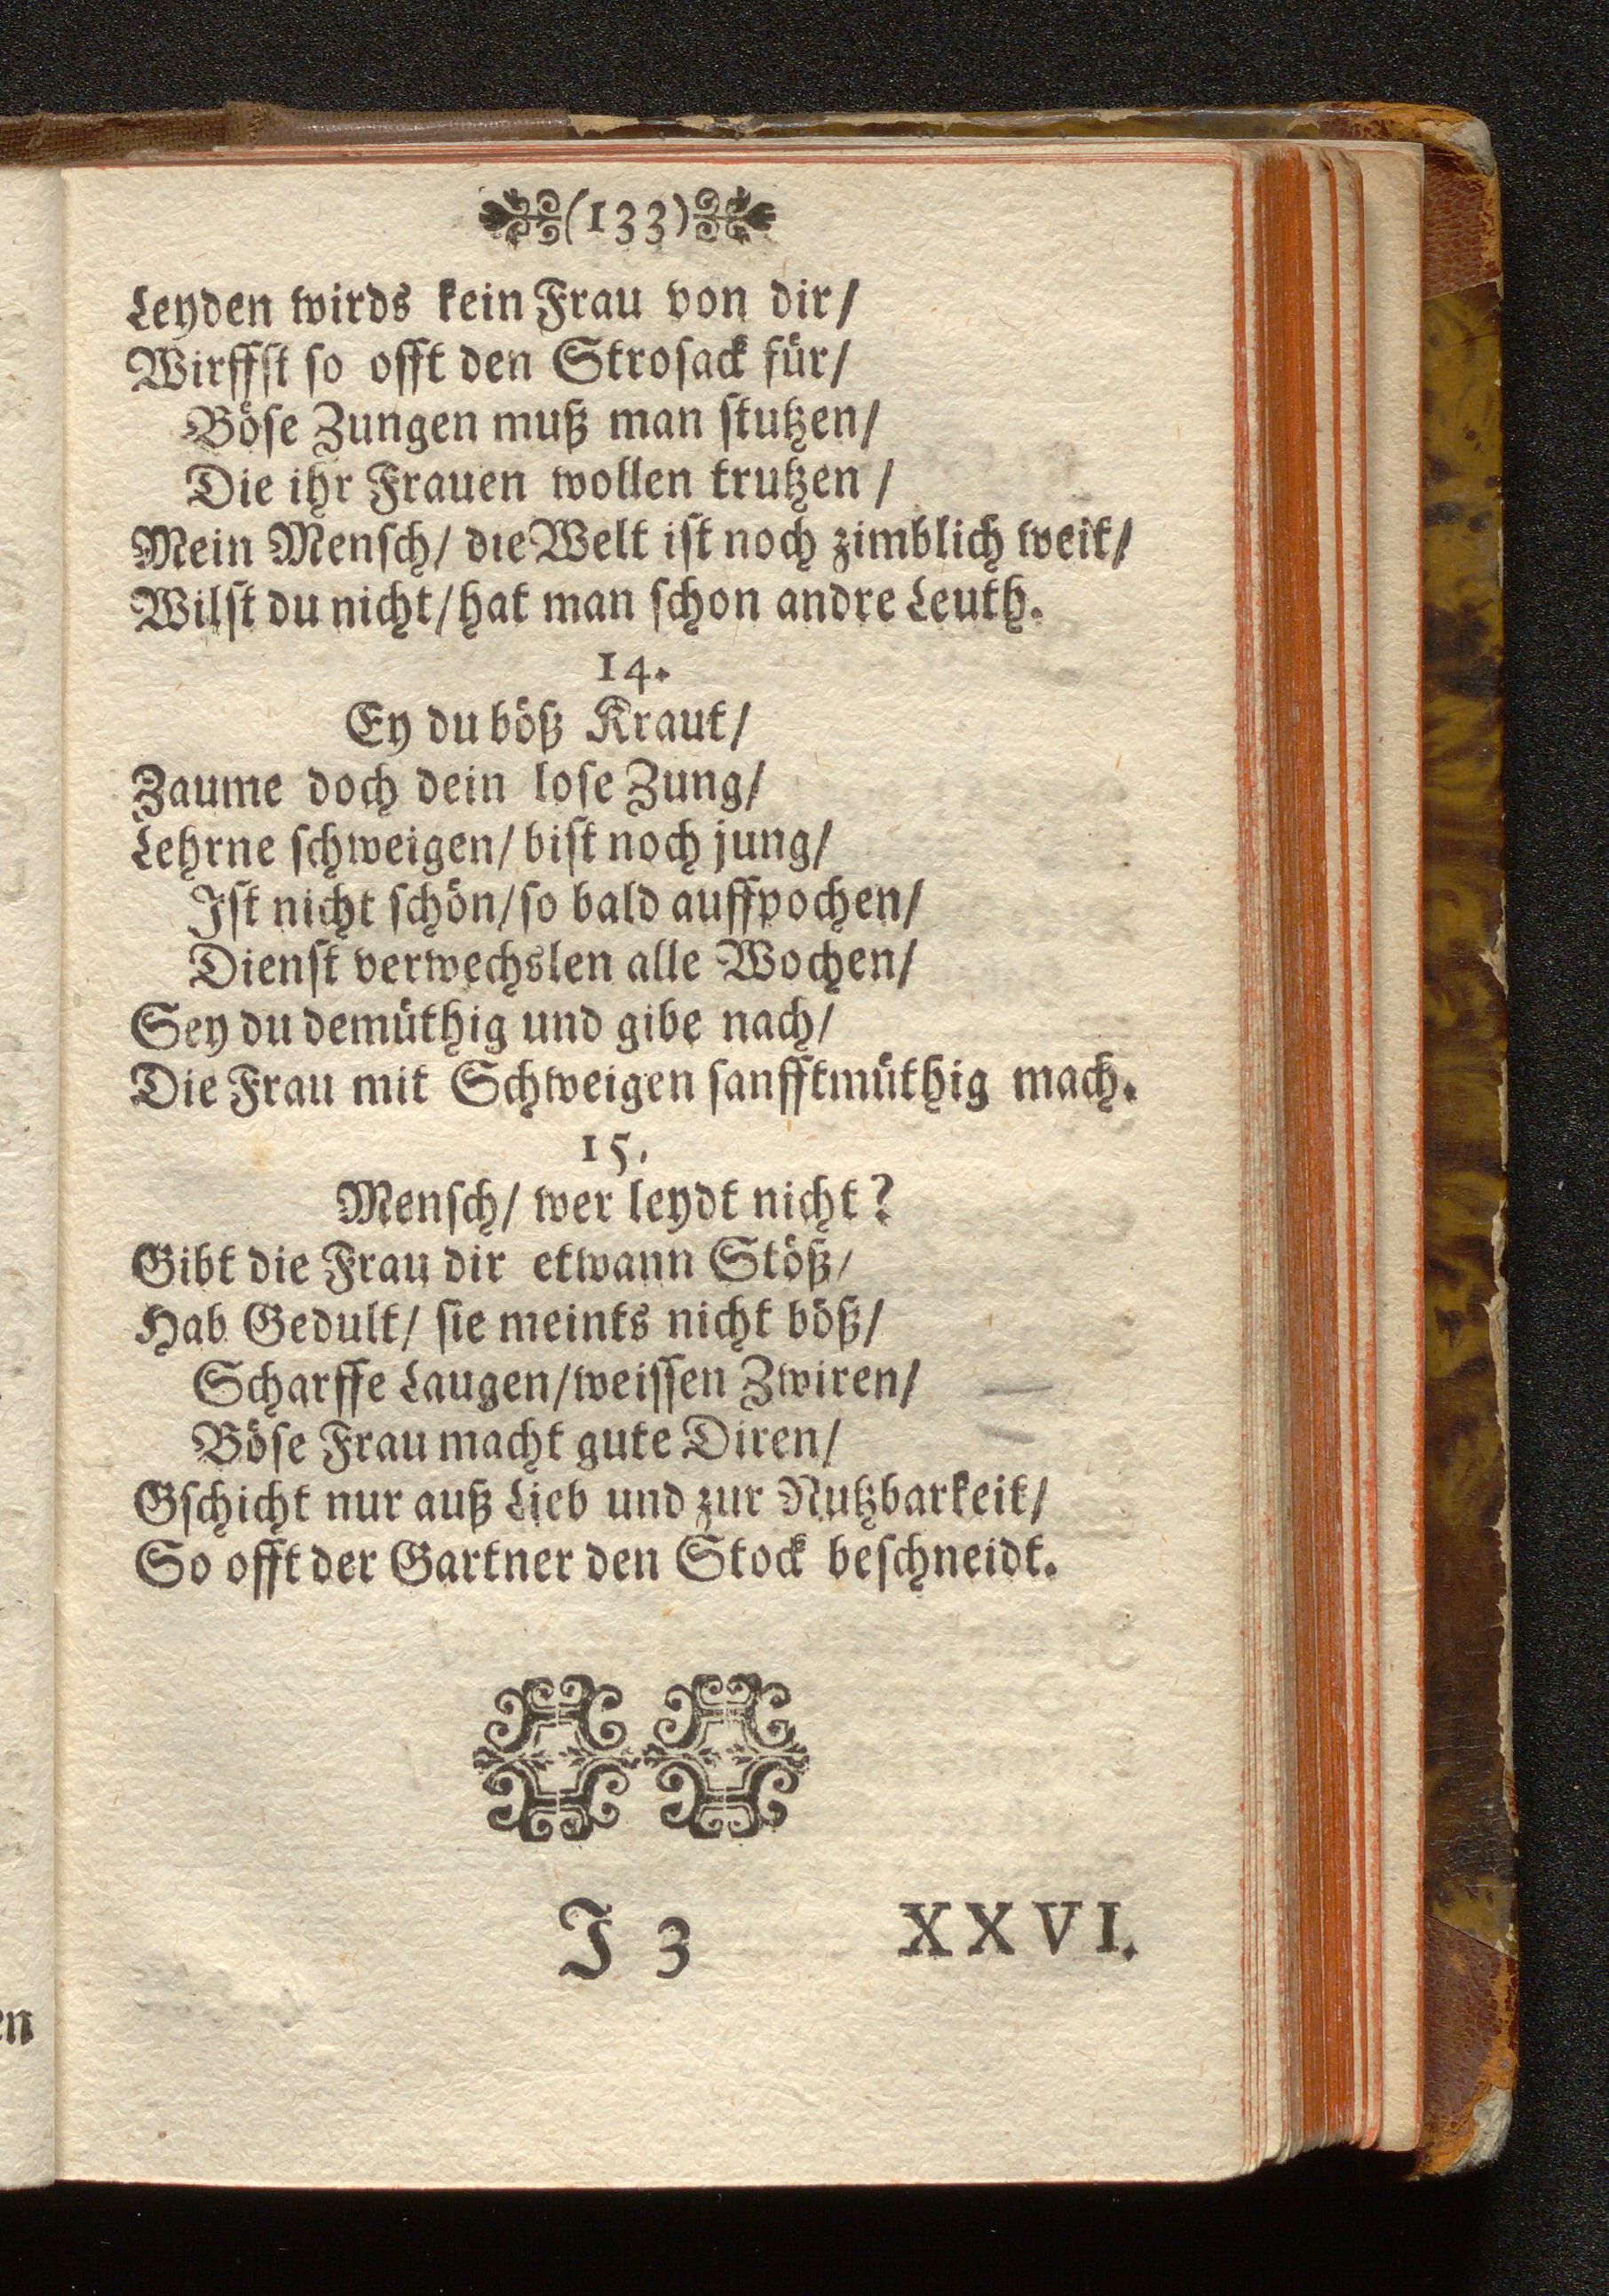 (133)
Leyden wirds kein Frau von dir/
Wirffſt ſo offt den Stroſack für/
Böſe Zungen muß man ſtutzen/
Die ihr Frauen wollen trutzen/
Mein Menſch/ die Welt iſt noch zimblich weit/
Wilſt du nicht/ hat man ſchon andre Leuth.
14.
Ey du böß Kraut/
Zaume doch dein loſe Zung/
Lehrne ſchweigen/ biſt noch jung/
Iſt nicht ſchön/ ſo bald auffpochen/
Dienſt verwechslen alle Wochen/
Sey du demüthig und gibe nach/
Die Frau mit Schweigen ſanfftmüthig mach.
15.
Menſch/ wer leydt nicht?
Gibt die Frau dir etwann Stöß/
Hab Gedult/ ſie meints nicht böß/
Scharffe Laugen/ weiſſen Zwiren/
Böſe Frau macht gute Diren/
Gſchicht nur auß Lieb und zur Nutzbarkeit/
So offt der Gartner den Stock beſchneidt.
J 3
XXVI.
en